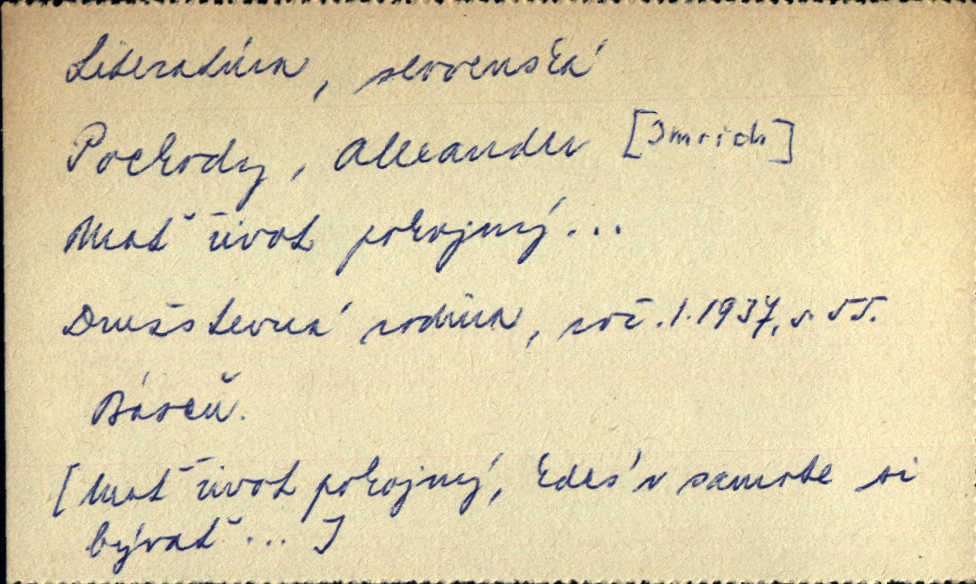 Literatúra, slovenská
Pockody, Alexander [Imrich]
Mať život pokojný...
Družstevná rodina, roč. 1. 1937, s. 55.
Báseň.
[Mať život pokojný, kdes' v samote si
bývať ... ]